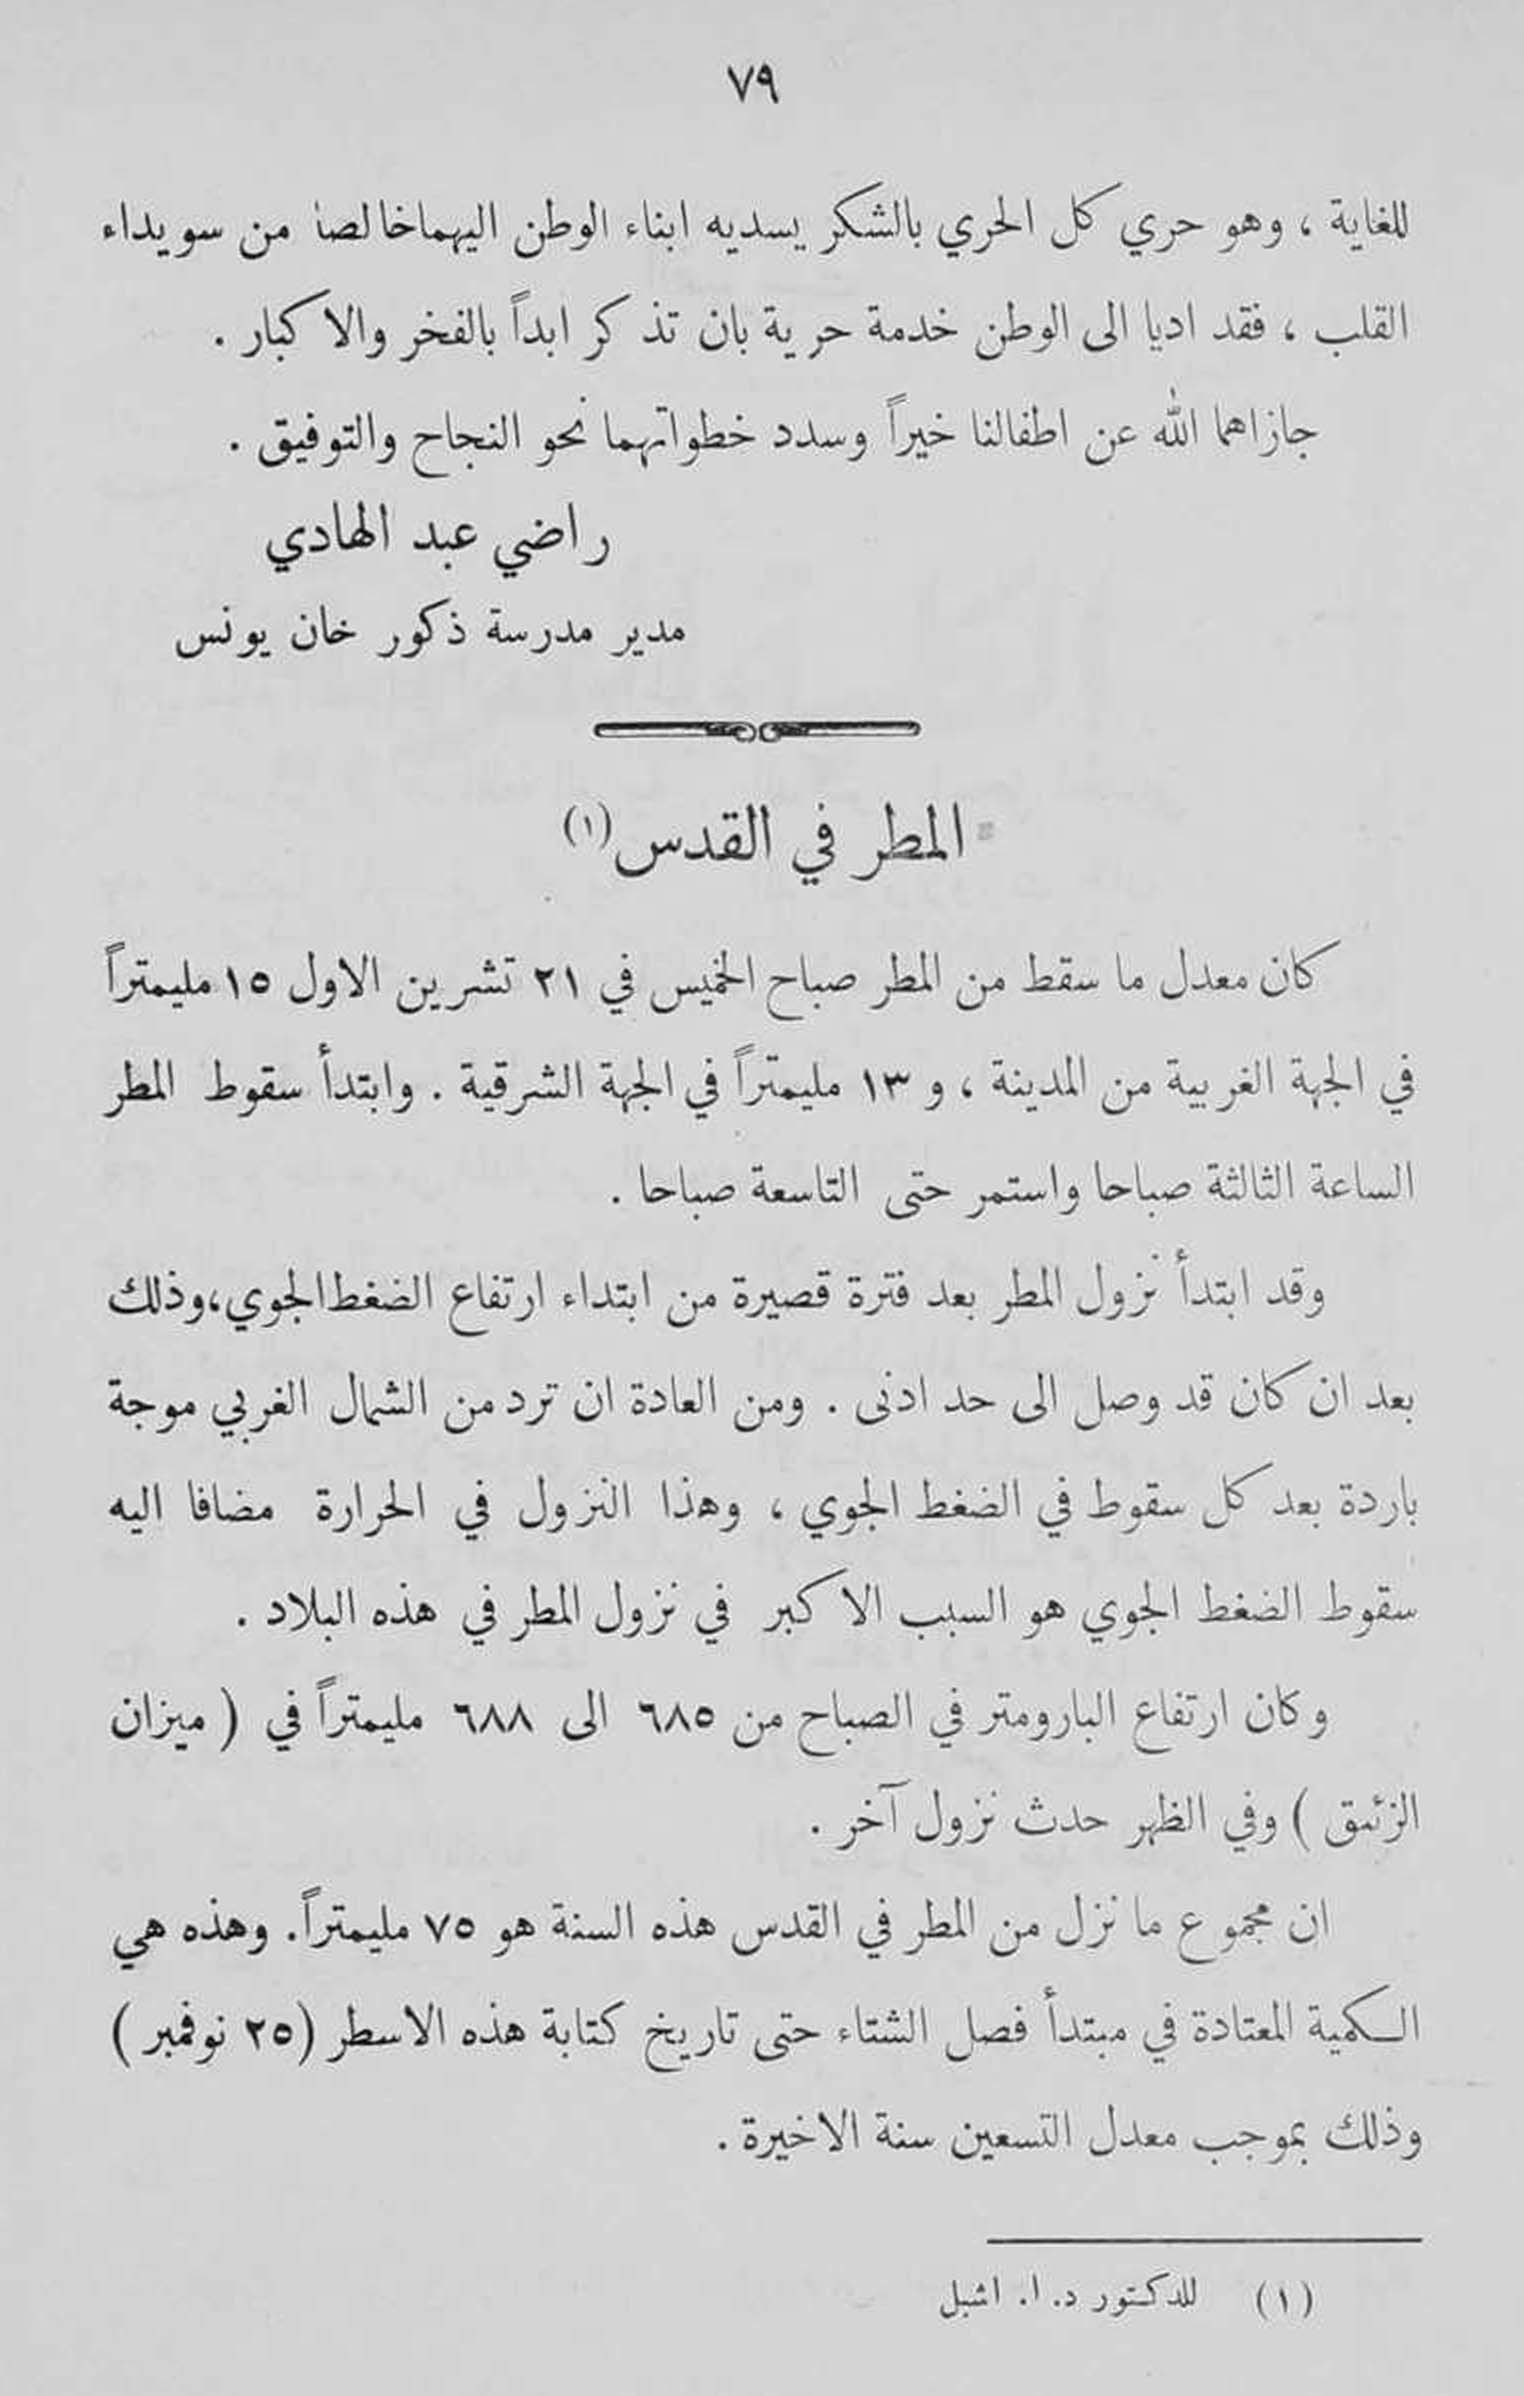 ٧٩
للغاية ، وهو حري كل الحري بالشكر يسديه ابناء الوطن اليهما خالصا من سويداء
القلب ، فقد اديا الى الوطن خدمة حرية بان تذكر ابداً بالفخر والاكبار .
جازاهما الله عن اطفالنا خيراً وسدد خطواتهما نحو النجاح والتوفيق .
راضي عبد الهادي
مدير مدرسة ذكور خان يونس
المطر في القدس (١)
كان معدل ما سقط من المطر صباح الخميس في ٢١ تشرين الاول ١٥ مليمتراً
في الجهة الغربية من المدينة ، و ١٣ مليمتراً في الجهة الشرقية . وابتدأ سقوط المطر
الساعة الثالثة صباحا واستمر حتى التاسعة صباحا .
وقد ابتدأ نزول المطر بعد فترة قصيرة من ابتداء ارتفاع الضغط الجوي، وذلك
بعد ان كان قد وصل الى حد ادنى . ومن العادة ان ترد من الشمال الغربي موجة
باردة بعد كل سقوط في الضغط الجوي ، وهذا النزول في الحرارة مضافا اليه
سقوط الضغط الجوي هو السبب الاكبر في نزول المطر في هذه البلاد .
وكان ارتفاع البارومتر في الصباح من ٦٨٥ الى ٦٨٨ مليمتراً في ( ميزان
الزئبق ) وفي الظهر حدث نزول آخر .
ان مجموع ما نزل من المطر في القدس هذه السنة هو ٧٥ مليمتراً. وهذه هي
الكمية المعتادة في مبتدأ فصل الشتاء حتى تاريخ كتابة هذه الاسطر (٢٥ نوفمبر )
وذلك بموجب معدل التسعين سنة الاخيرة .
(١) للدكتور د. ا. اشبل